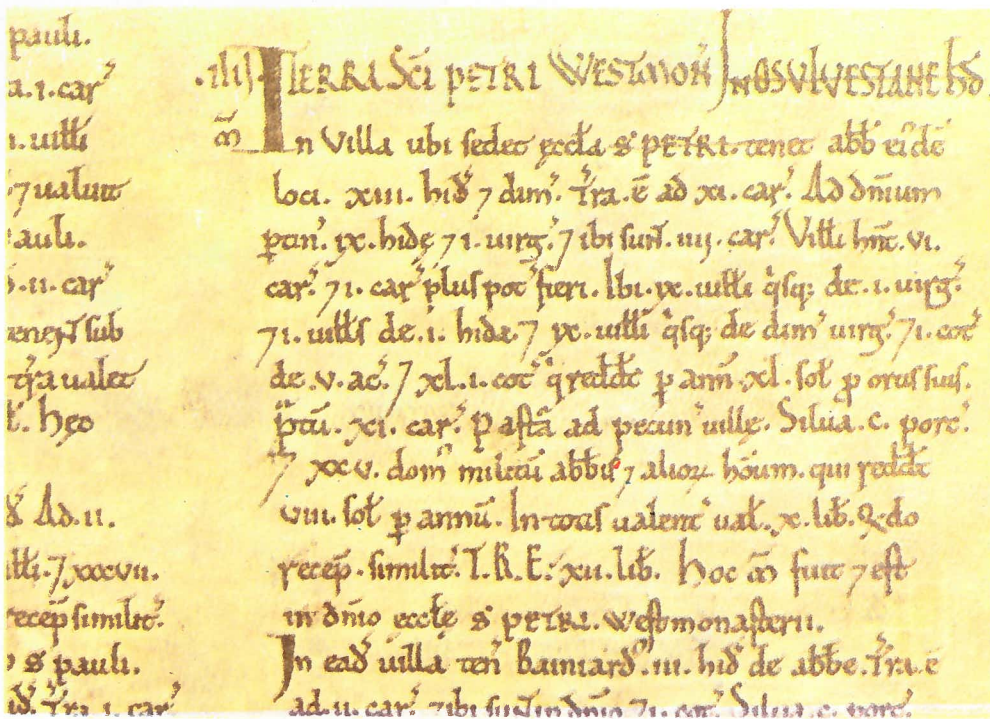 pauli.
a.i.car̃
n.uill̃i
⁊ ualuit
auli.
.ii.car̃
sub
t̃ra ualet
Ad.ii.
uill̃i.⁊ xxxvii.
recep̃ similit̃.
s̃ pauli.
t̃ra.i.car̃
.iiii. TERRA SC̃I PETRI WESTMON̾ IN OSVLVESTANE HD̃
m̃ In Villa ubi sedet æccl̃a S̾ PETRI. tenet abb̃ ei'dẽ
loci. xiii. hid̾ ⁊ dim̾. T̾ra.ẽ ad xi. car̾. Ad dñium
ꝑtin̾. ix. hidę ⁊ i. uirg̾. ⁊ ibi sunt̾. iiij. car̾. Vill̃i hñt. vi.
car̾. ⁊ i. car̾ plus pot̾ fieri. Ibi. ix. uill̃i q̾sq; de. i. uirg̾.
⁊ i. uill̃s de. i. hida. ⁊ ix. uill̃i q̾sq; de dim̾ uirg̾. ⁊ i. cot̾
de. v. ac̾. ⁊ xl. i. cot̾ q̾ redd̃t ꝑ ann̾. xl. sol̃ ꝓ ortis suis.
p̃tũ. xi. car̾. Pastã ad pecun̾ uillę. Silua. c. porc̾.
⁊ xxv. dom̾ militũ abb̃is ⁊ alioꝝ hõum. qui redd̃t
viii. sol̃ ꝑ annũ. In totis ualent̾ ual̾. x. lib̃. Q̃do
recep̃. similit̾. T.R.E. xii. lib̃. Hoc m̃ fuit ⁊ est
in dñio eccl̃ę S̾ PETRI. westmonasterii.
In ead̾ uilla ten̾ Bainiard̾. iii. hid̾ de abb̃e. T̾ra.ẽ
ad. ii. car̾. ⁊ ibi sunt̾ in dñio ⁊ i. cot̾. Silua. c. porc̾.